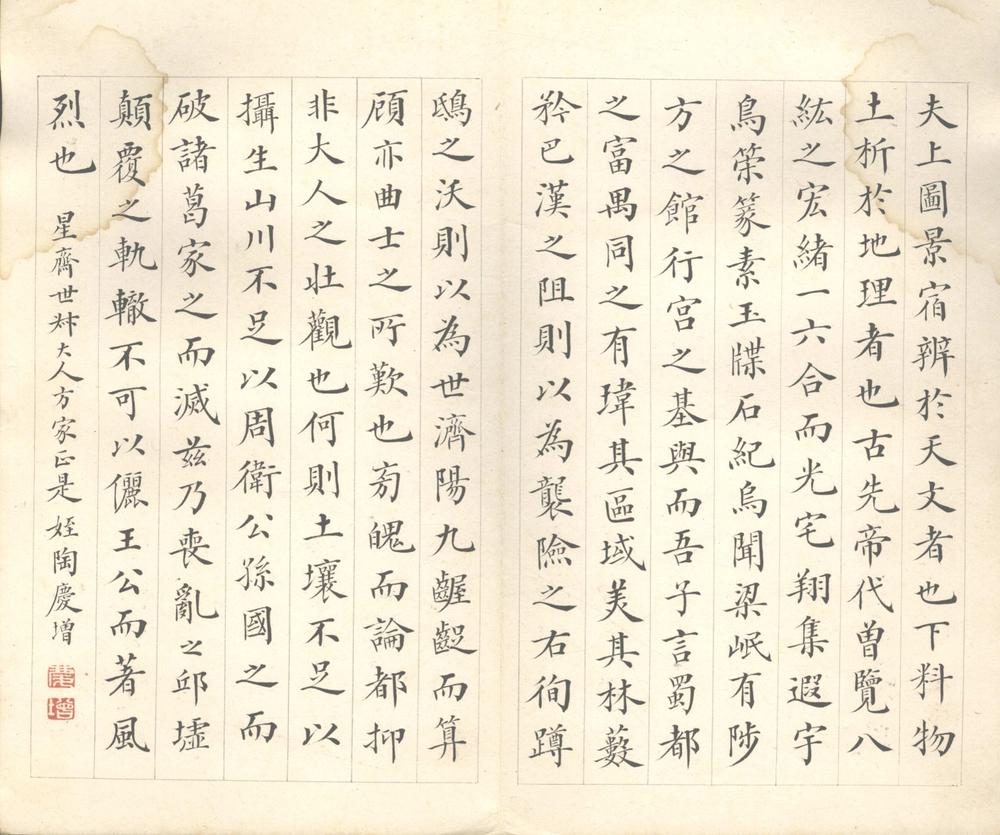 夫上圖景宿辨於天文者也下料物
土析於地理者也古先帝代曽覽八
紘之宏緒一六合而光宅翔集遐宇
鳥策篆素玉牒石紀烏聞梁岷有陟
方之館行宮之基與而吾子言蜀都
之富禺同之有瑋其區域美其林藪
矜巴漢之阻則以為襲險之右徇蹲
鴟之沃則以為世濟陽九齷齪而算
顧亦曲士之所歎也旁魄而論都抑
非大人之壯觀也何則土壤不足以
攝生山川不足以周衛公孫國之而
破諸葛家之而滅茲乃喪亂之邱墟
顛覆之軌轍不可以儷王公而著風
烈也　星齋世叔大人方家正是　姪陶慶增
慶增